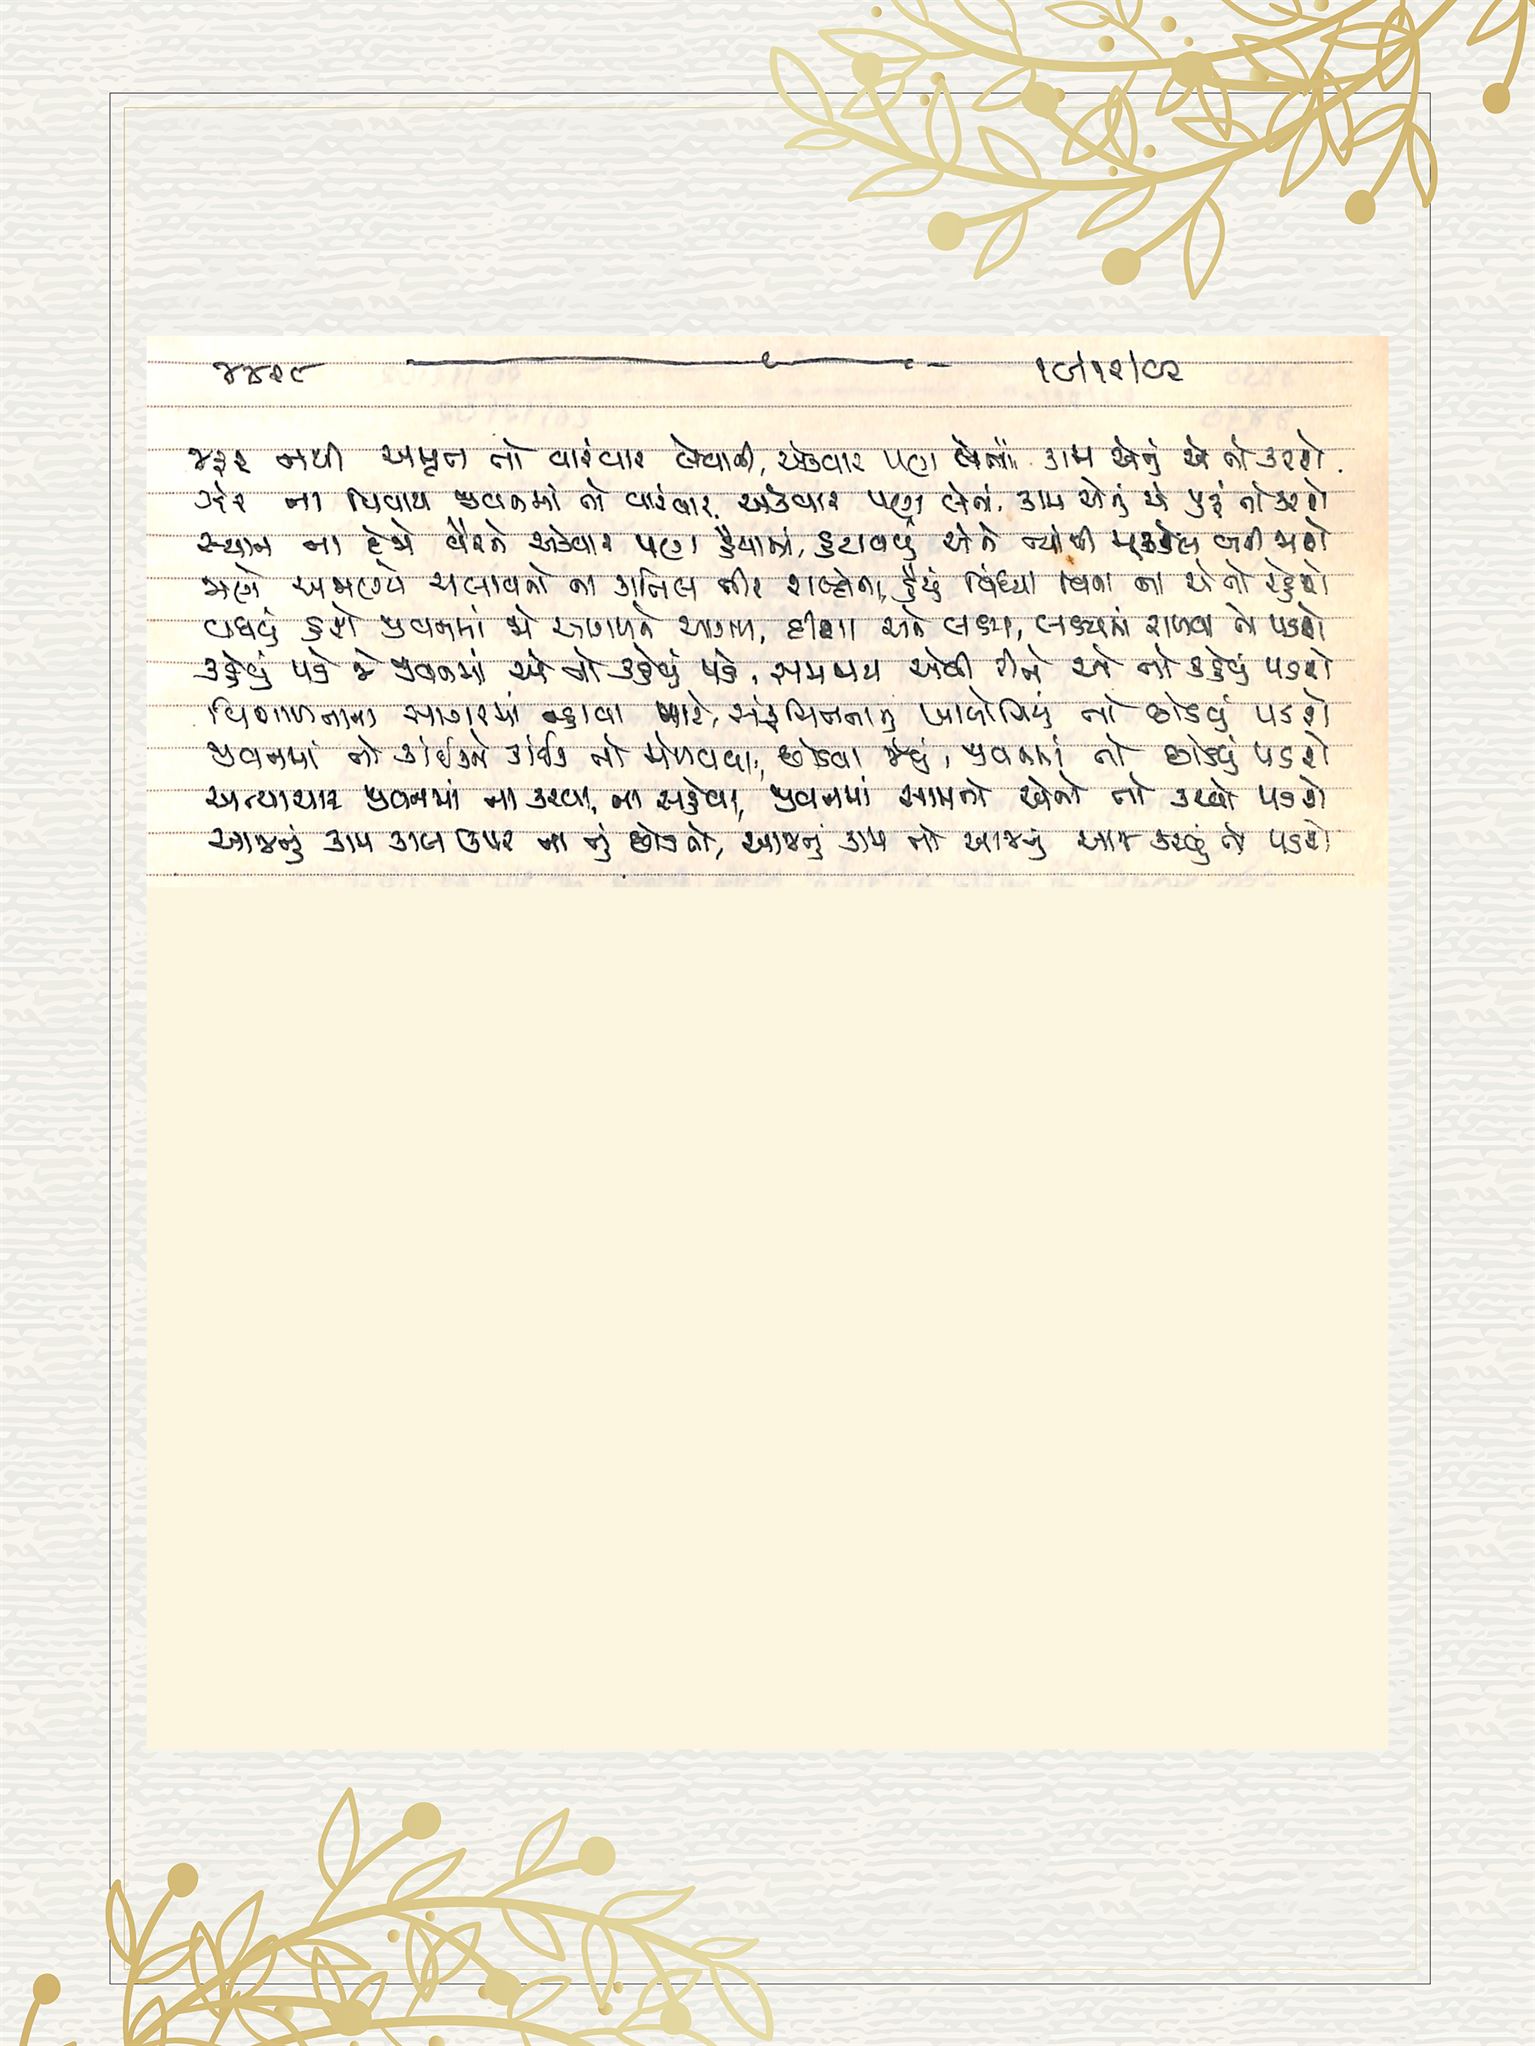 ૪૪૨૯ ૧૯/૧૨/૯૨
જરૂર નથી અમૃત તો વારંવાર લેવાની, એકવાર પણ લેતાં કામ એનું એ તો કરશે.
ઝેર ના પિવાય જીવનમાં તો વારંવાર, એકવાર પણ લેતાં, કામ એનું એ પુરૂં તો કરશે
સ્થાન ના દેજે વૈરને એકવાર પણ હૈયામાં, હટાવવું એને ત્યાંથી મુશ્કેલ બની જાશે
જાણે અજાણ્યે ચલાવતો ના કાતિલ તીર શબ્દોના, હૈયું વિંધ્યા વિના ના એ તો રહેશે
વધવું હશે જીવનમાં જો આગળને આગળ, દીશા અને લક્ષ્ય, લક્ષ્યમાં રાખવા તો પડશે
કહેવું પડે જે જીવનમાં એ તો કહેવું પડે, સમજાય એવી રીતે એને તો કહેવું પડશે
વિશાળતાના સાગરમાં ન્હાવા માટે, સંકુચિતતાનું ખાબોચિયું તો છોડવું પડશે
જીવનમાં તો કાંઈકને કાંઈક તો મેળવવા, છોડવા જેવું, જીવનમાં તો છોડવું પડશે
અત્યાચાર જીવનમાં ના કરવા, ના સહેવા, જીવનમાં સામનો એનો તો કરવો પડશે
આજનું કામ કાલ ઉપર ના તું છોડતો, આજનું કામ તો આજનું આજ કરવું તો પડશે